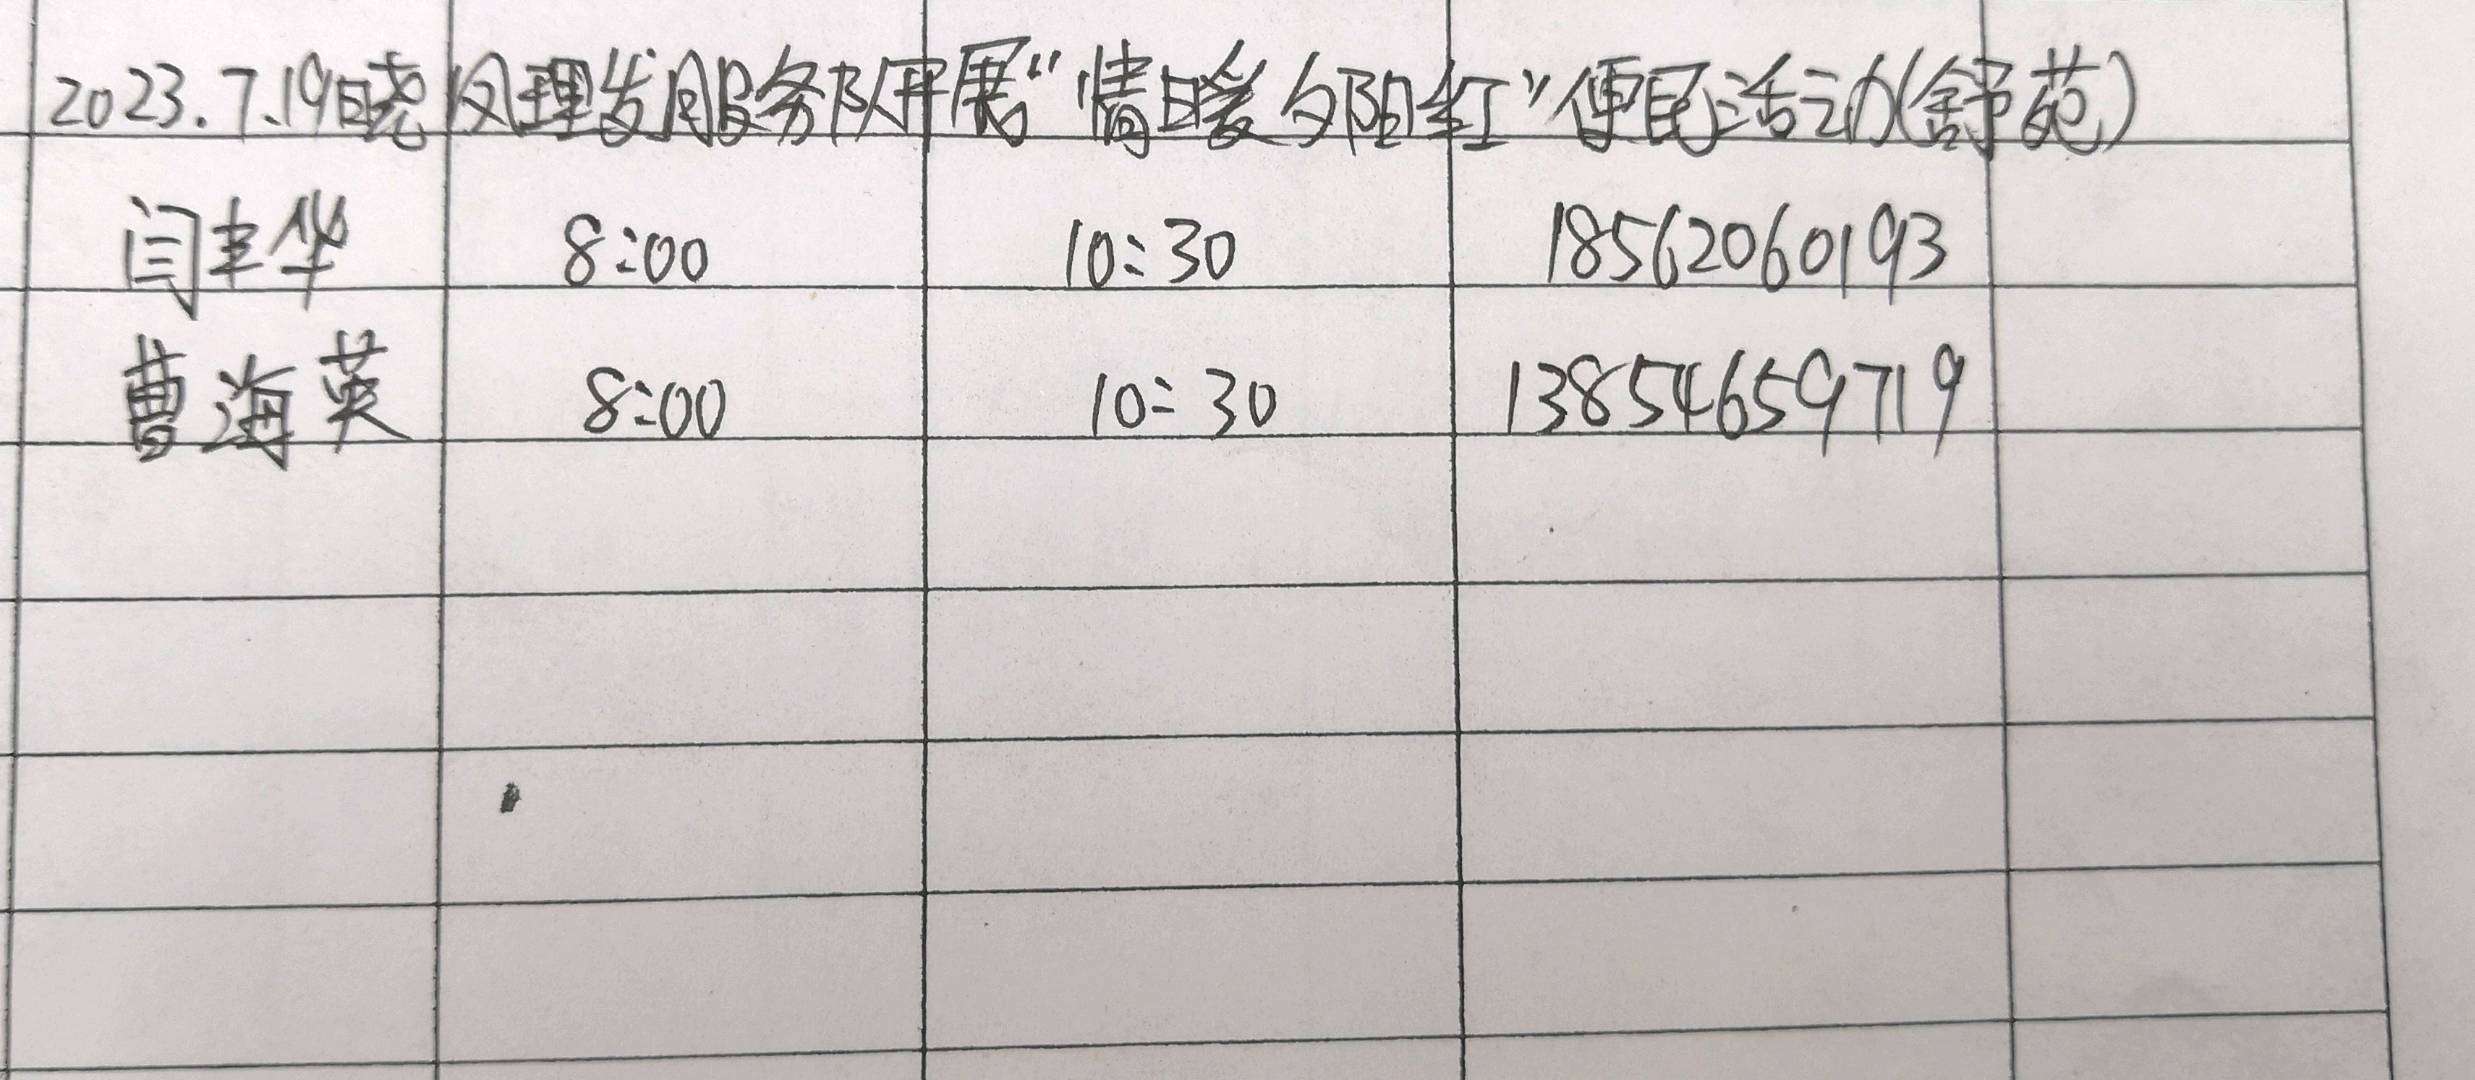 2023.7.19晓凤理发服务队开展“情暖夕阳红”便民活动(舒苑)
闫丰华 8:00 10:30 18562060193
曹海英 8:00 10:30 13854659719